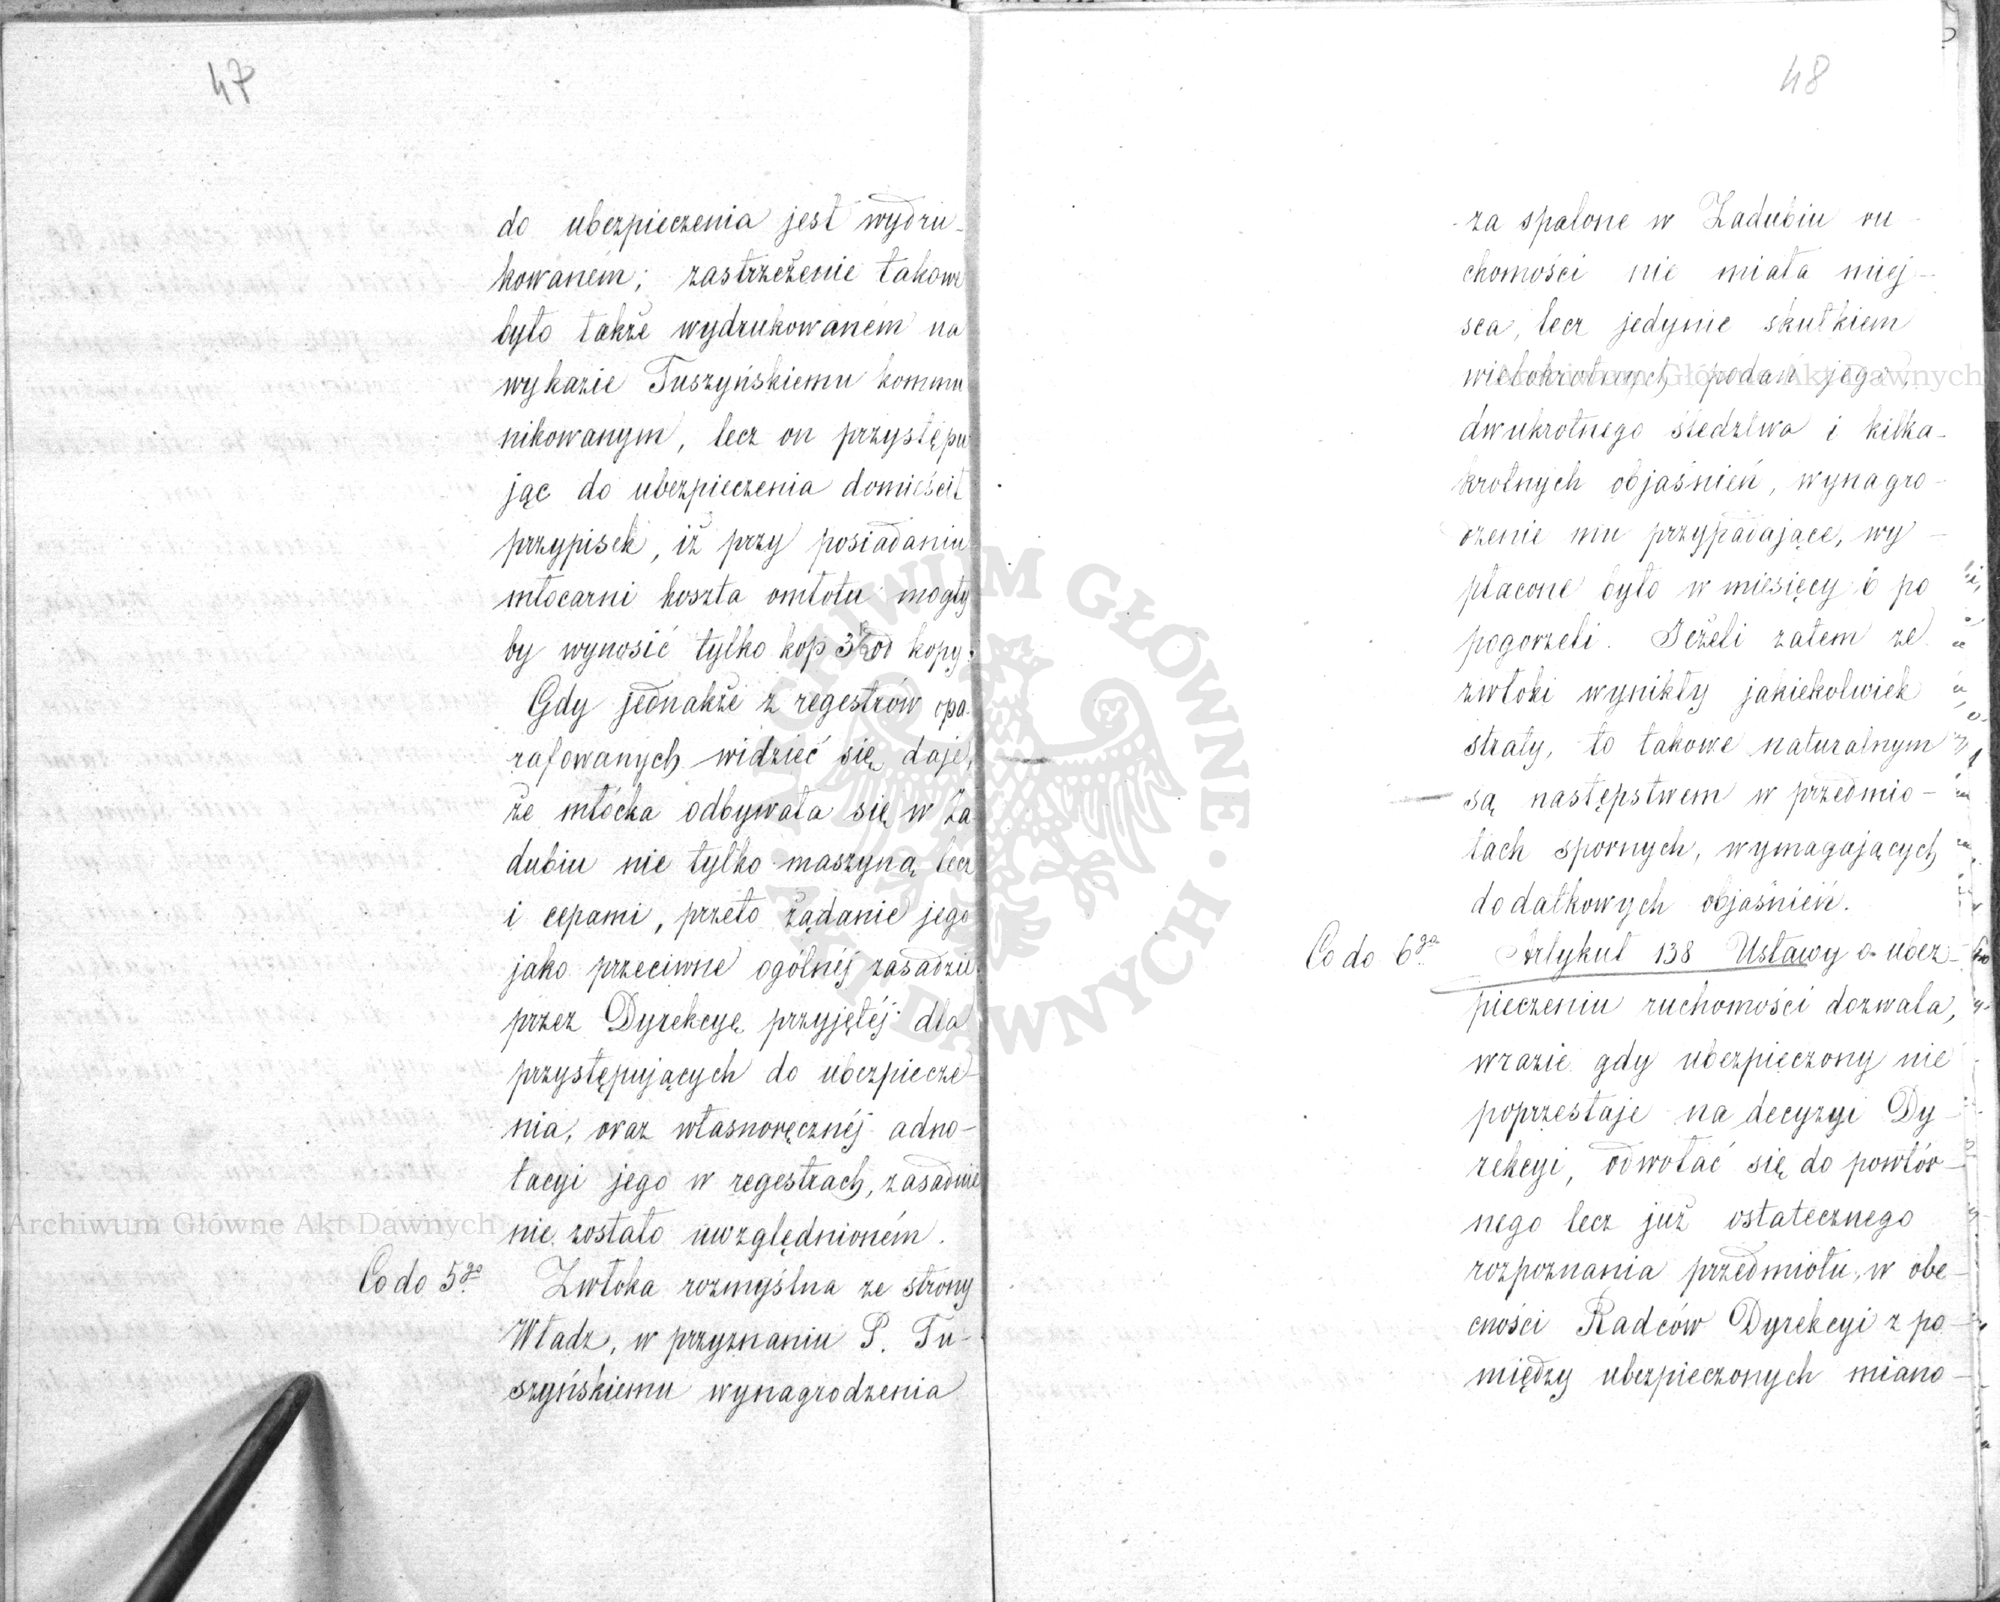 47
do ubezpieczenia jest wydru-
kowaném; zastrzeżenie takowe
było także wydrukowaném na
wykazie Tuszyńskiemu kommu
nikowanym, lecz on przystępu
jąc do ubezpieczenia domieścił
przypisek, iż przy posiadaniu
młocarni koszta omłotu mogły
by wynosić tylko kop 3½ od kopy;
Gdy jednakże z regestrów opa
rafowanych widzieć się daje,
że młócka odbywała się w Za
dubiu nie tylko maszyną lecz
i cepami, przeto żądanie jego
jako przeciwne ogólnéj zasadzie
przez Dyrekcyę przyjętéj dla
przystępujących do ubezpiecze-
nia, oraz własnoręcznéj adno-
tacyi jego w regestrach, zasadnie
nie zostało uwzględnioném.
Co do 5go Zwłoka rozmyślna ze strony
Władz, w przyznaniu P. Tu-
szyńskiemu wynagrodzenia
48
za spalone w Zadubiu ru
chomości nie miała miej-
sca, lecz jedynie skutkiem
wielokrotnych podań jego,
dwukrotnego śledztwa i kilka-
krotnych objaśnień, wynagro-
dzenie mu przypadające, wy-
płacone było w miesięcy 6 po
pogorzeli. Jeżeli zatem ze
zwłoki wynikły jakiekolwiek
straty, to takowe naturalnym
są następstwem w przedmio-
tach spornych, wymagających
dodatkowych objaśnień.
Co do 6go Artykuł 138 Ustawy o ubez-
pieczeniu ruchomości dozwala,
wrazie gdy ubezpieczony nie
poprzestaje na decyzyi Dy-
rekcyi, odwołać się do powtór-
nego lecz już ostatecznego
rozpoznania przedmiotu, w obe-
cności Radców Dyrekcyi z po-
między ubezpieczonych miano-
Archiwum Główne Akt Dawnych
Archiwum Główne Akt Dawnych
ARCHIWUM GŁÓWNE AKT DAWNYCH